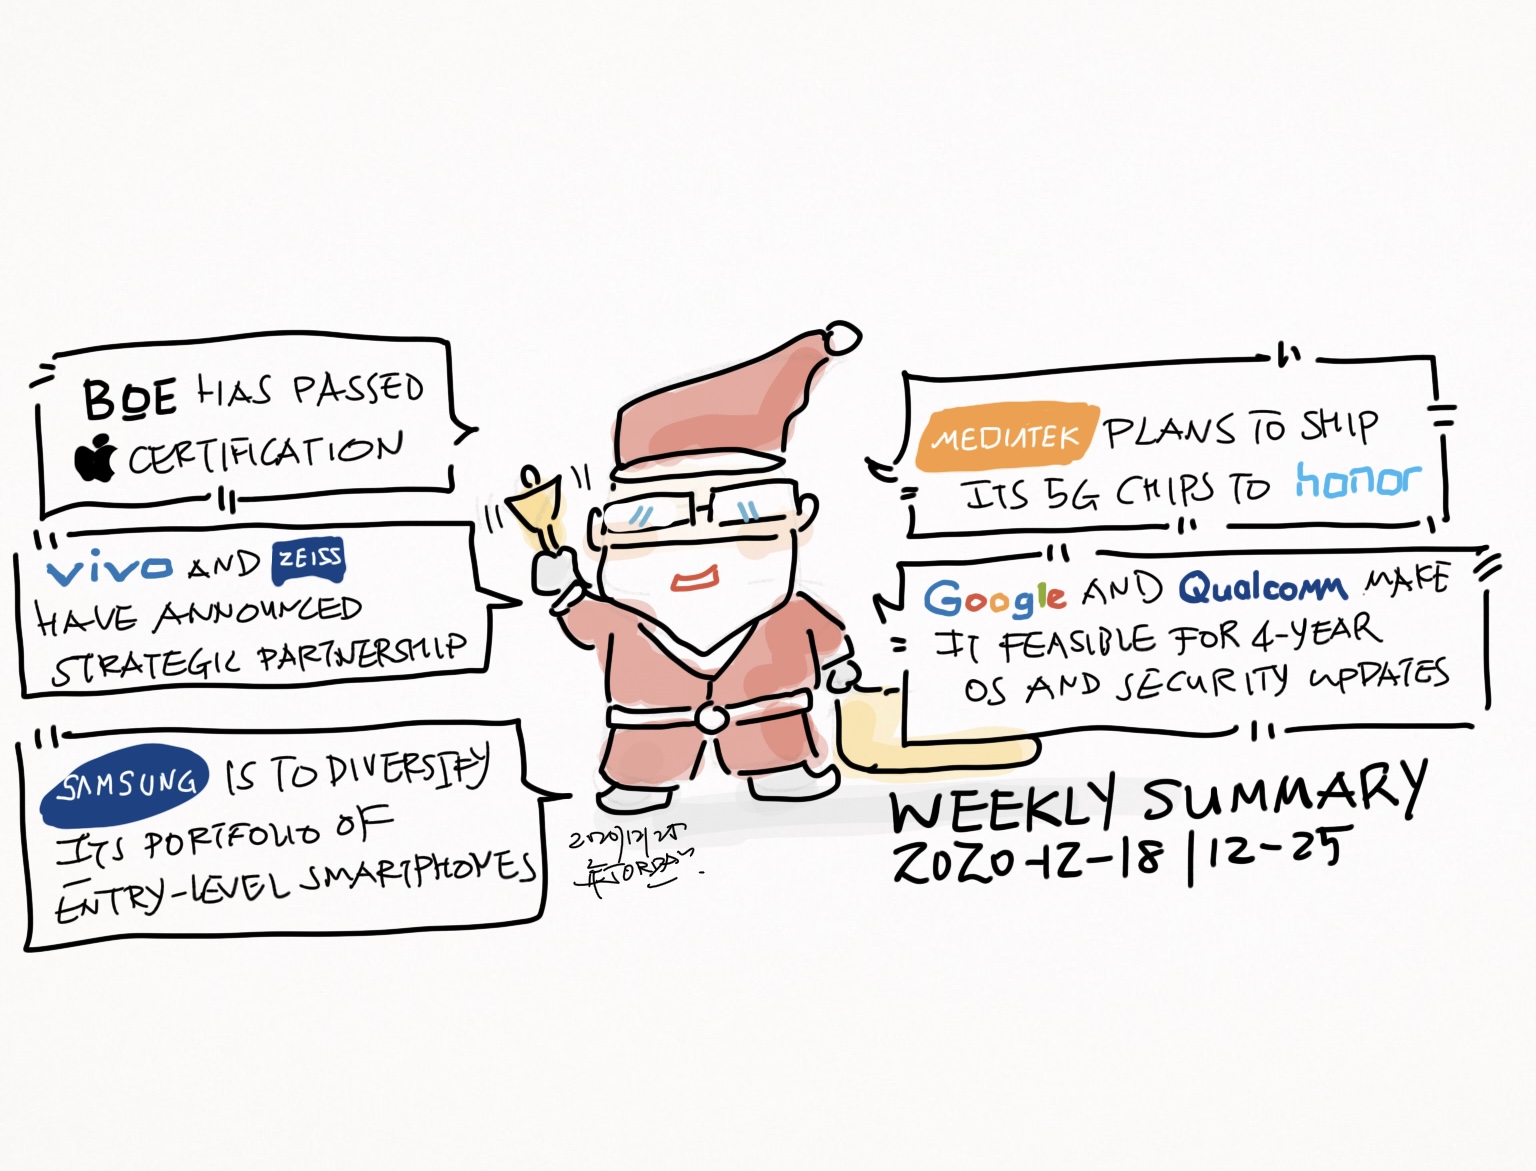 BOE HAS PASSED
CERTIFICATION
vivo AND ZEISS
HAVE ANNOUNCED
STRATEGIC PARTNERSHIP
SAMSUNG IS TO DIVERSIFY
ITS PORTFOLIO OF
ENTRY-LEVEL SMARTPHONES
MEDIATEK PLANS TO SHIP
ITS 5G CHIPS TO honor
Google AND Qualcomm MAKE
IT FEASIBLE FOR 4-YEAR
OS AND SECURITY UPDATES
WEEKLY SUMMARY
2020-12-18 | 12-25
2020/12/25
JORDAN